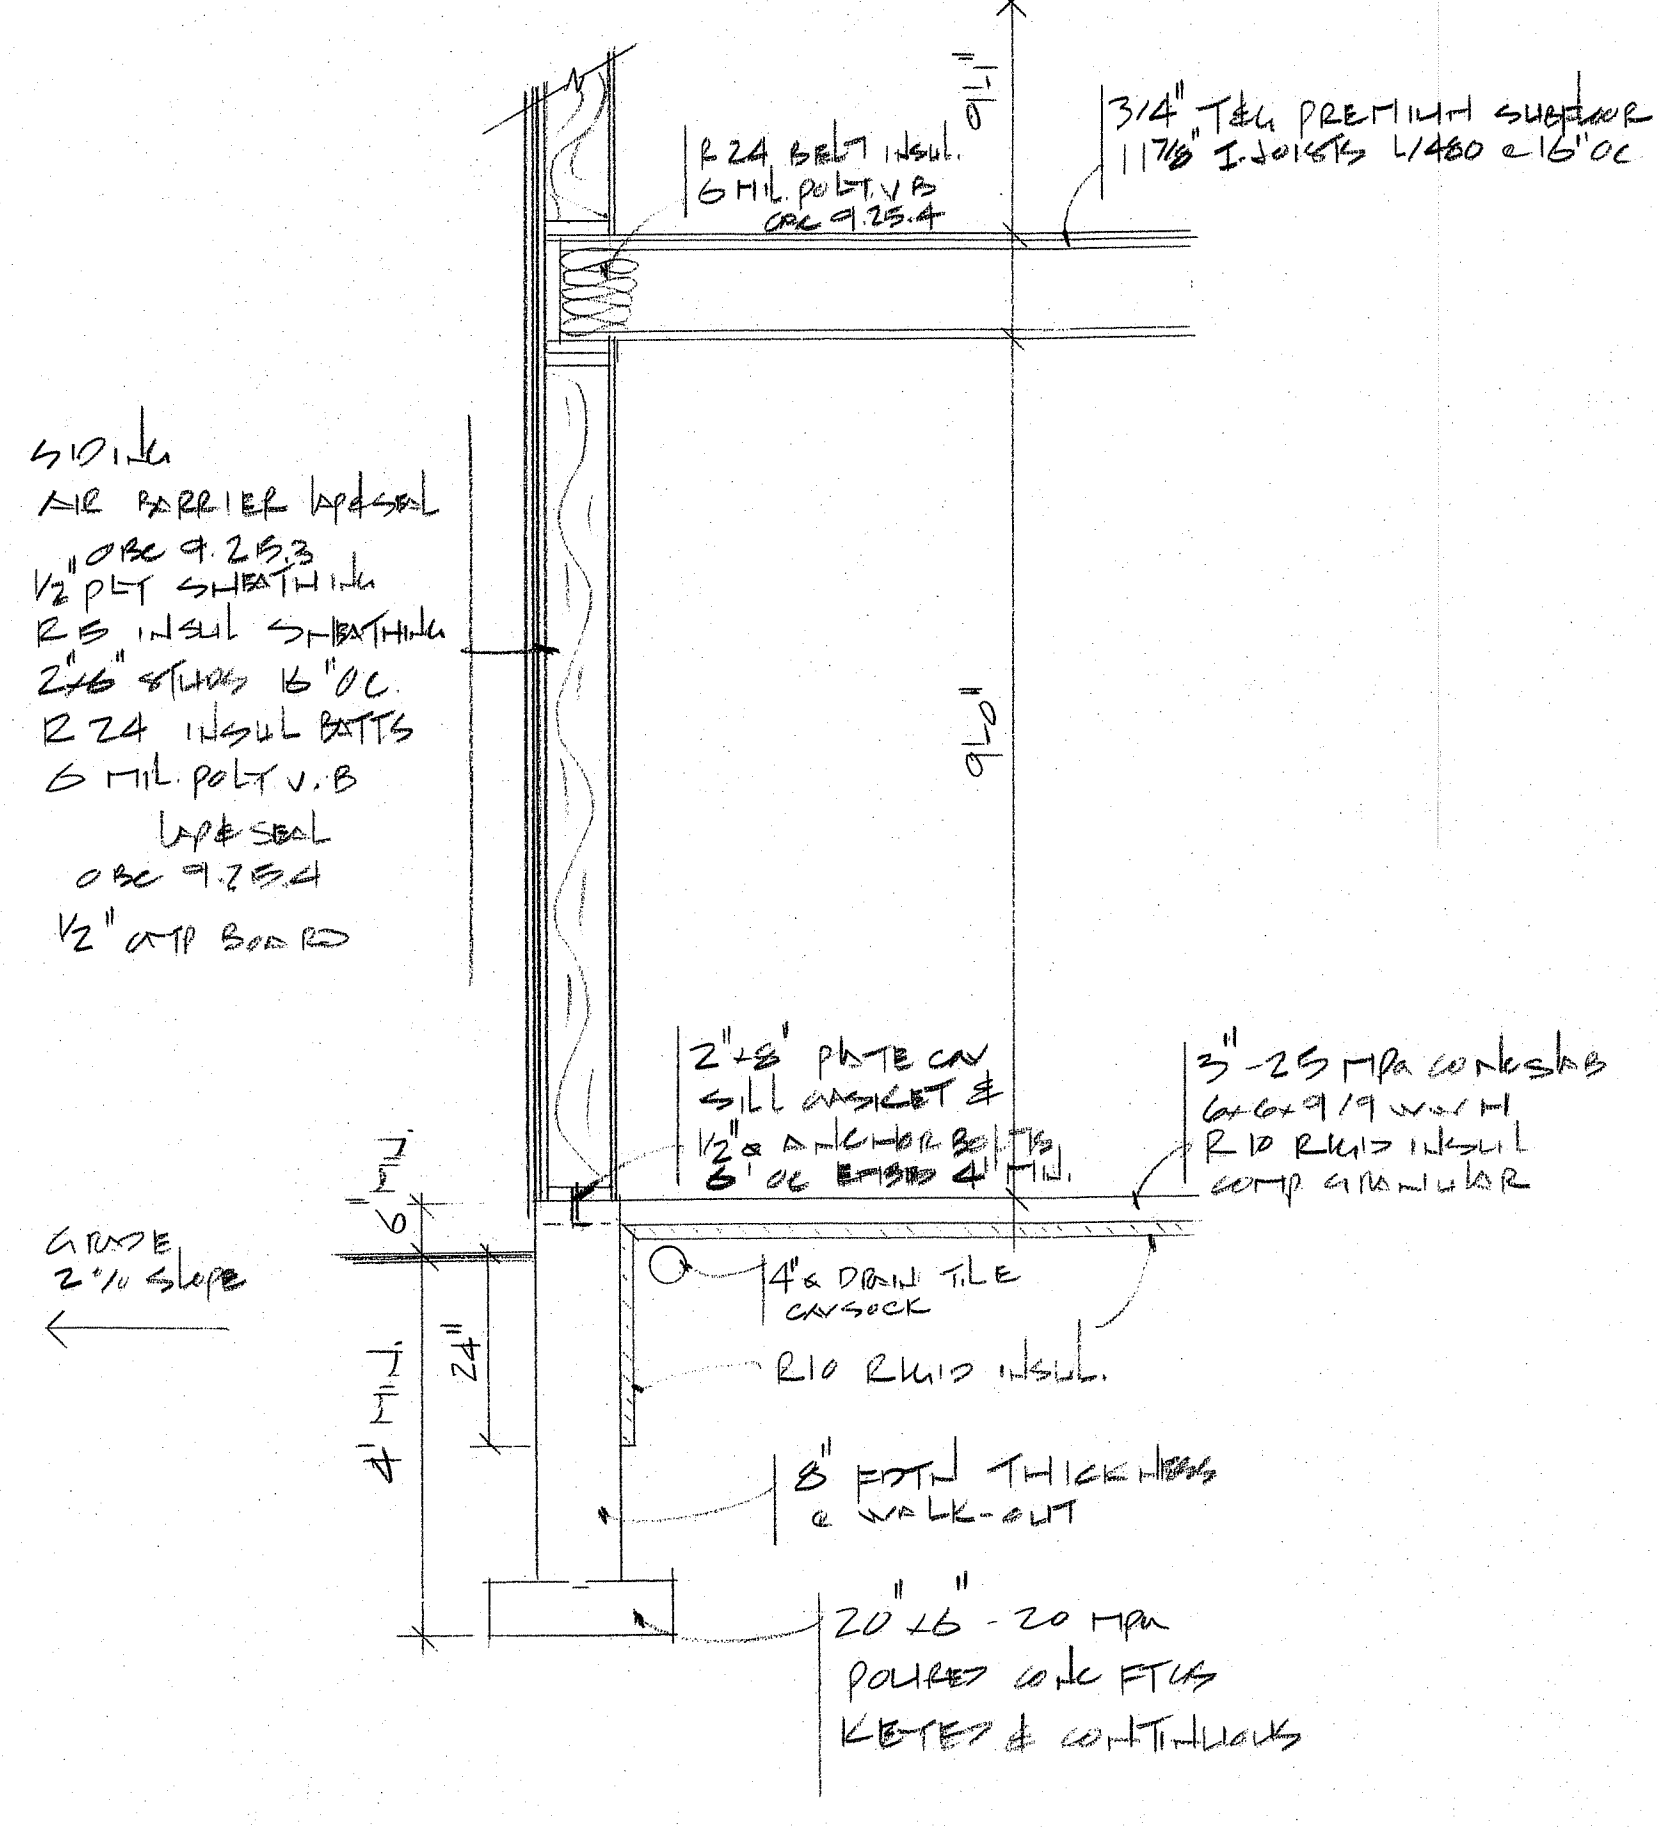 9'-1"
3/4" T&G PREMIUM SUBFLOOR
11 7/8" I-JOISTS L/480 @ 16" OC
R 24 BELT INSUL.
6 MIL. POLY. V B
OBC 9.25.4
SIDING
AIR BARRIER LAP & SEAL
OBC 9.25.3
1/2" PLY SHEATHING
R5 INSUL SHEATHING
2"x6" STUDS 16" OC.
R 24 INSUL BATTS
6 MIL. POLY V.B
LAP & SEAL
OBC 9.25.4
1/2" GYP BOARD
9'-0"
2"x8" PLATE C/W
SILL GASKET &
1/2"ø ANCHOR BOLTS
6' OC EMBED 4" MIN.
3" - 25 MPa CONC SLAB
6x6x9/9 WWM
R10 RIGID INSUL
COMP GRANULAR
6" MIN.
GRADE
2% SLOPE
4"ø DRAIN TILE
C/W SOCK
24"
4' MIN.
R10 RIGID INSUL.
8" FDTN THICKNESS
@ WALK-OUT
20"x6" - 20 MPa
POURED CONC FTGS
KEYED & CONTINUOUS